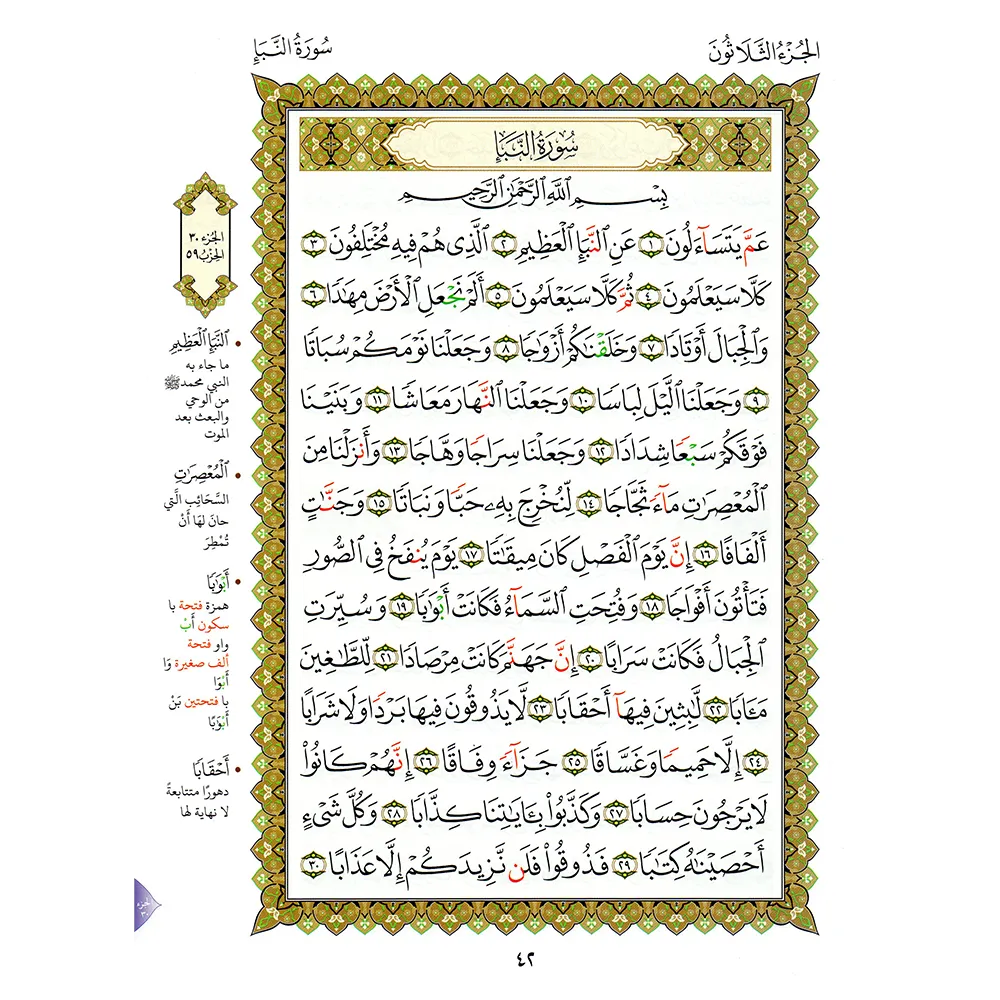 الجُزْءُ الثَّلَاثُونَ
سُورَةُ النَّبَإِ
سُورَةُ النَّبَإِ
بِسْمِ ٱللَّهِ ٱلرَّحْمَٰنِ ٱلرَّحِيمِ
عَمَّ يَتَسَآءَلُونَ ١ عَنِ ٱلنَّبَإِ ٱلْعَظِيمِ ٢ ٱلَّذِى هُمْ فِيهِ مُخْتَلِفُونَ ٣
كَلَّا سَيَعْلَمُونَ ٤ ثُمَّ كَلَّا سَيَعْلَمُونَ ٥ أَلَمْ نَجْعَلِ ٱلْأَرْضَ مِهَٰدًا ٦
وَٱلْجِبَالَ أَوْتَادًا ٧ وَخَلَقْنَٰكُمْ أَزْوَٰجًا ٨ وَجَعَلْنَا نَوْمَكُمْ سُبَاتًا
٩ وَجَعَلْنَا ٱلَّيْلَ لِبَاسًا ١٠ وَجَعَلْنَا ٱلنَّهَارَ مَعَاشًا ١١ وَبَنَيْنَا
فَوْقَكُمْ سَبْعًا شِدَادًا ١٢ وَجَعَلْنَا سِرَاجًا وَهَّاجًا ١٣ وَأَنزَلْنَا مِنَ
ٱلْمُعْصِرَٰتِ مَآءً ثَجَّاجًا ١٤ لِّنُخْرِجَ بِهِۦ حَبًّا وَنَبَاتًا ١٥ وَجَنَّٰتٍ
أَلْفَافًا ١٦ إِنَّ يَوْمَ ٱلْفَصْلِ كَانَ مِيقَٰتًا ١٧ يَوْمَ يُنفَخُ فِى ٱلصُّورِ
فَتَأْتُونَ أَفْوَاجًا ١٨ وَفُتِحَتِ ٱلسَّمَآءُ فَكَانَتْ أَبْوَٰبًا ١٩ وَسُيِّرَتِ
ٱلْجِبَالُ فَكَانَتْ سَرَابًا ٢٠ إِنَّ جَهَنَّمَ كَانَتْ مِرْصَادًا ٢١ لِّلطَّٰغِينَ
مَـَٔابًا ٢٢ لَّٰبِثِينَ فِيهَآ أَحْقَابًا ٢٣ لَّا يَذُوقُونَ فِيهَا بَرْدًا وَلَا شَرَابًا
٢٤ إِلَّا حَمِيمًا وَغَسَّاقًا ٢٥ جَزَآءً وِفَاقًا ٢٦ إِنَّهُمْ كَانُوا۟
لَا يَرْجُونَ حِسَابًا ٢٧ وَكَذَّبُوا۟ بِـَٔايَٰتِنَا كِذَّابًا ٢٨ وَكُلَّ شَىْءٍ
أَحْصَيْنَٰهُ كِتَٰبًا ٢٩ فَذُوقُوا۟ فَلَن نَّزِيدَكُمْ إِلَّا عَذَابًا ٣٠
الجُزء ٣٠
الحِزْبُ ٥٩
• ٱلنَّبَإِ ٱلْعَظِيمِ
ما جاء به
النبي محمد ﷺ
من الوحي
والبعث بعد
الموت
• ٱلْمُعْصِرَٰتِ
السَّحَائِب الَّتِي
حانَ لهَا أَنْ
تُمْطِرَ
• أَبْوَٰبًا
همزة فتحة با
سكون أَبْ
واو فتحة
ألف صغيرة وَا
أَبْوَا
با فتحتين بَنْ
أَبْوَٰبًا
• أَحْقَابًا
دهورًا متتابعةً
لا نهاية لها
جزء
٣٠
٤٢